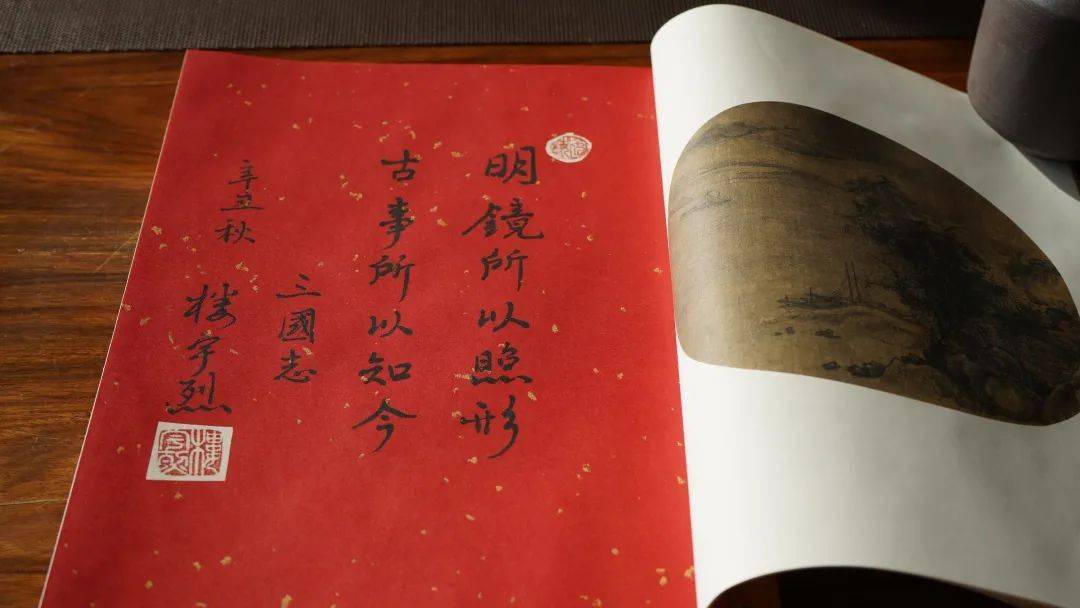 明鏡所以照形
古事所以知今
三國志
辛丑秋
楼宇烈
樓宇烈